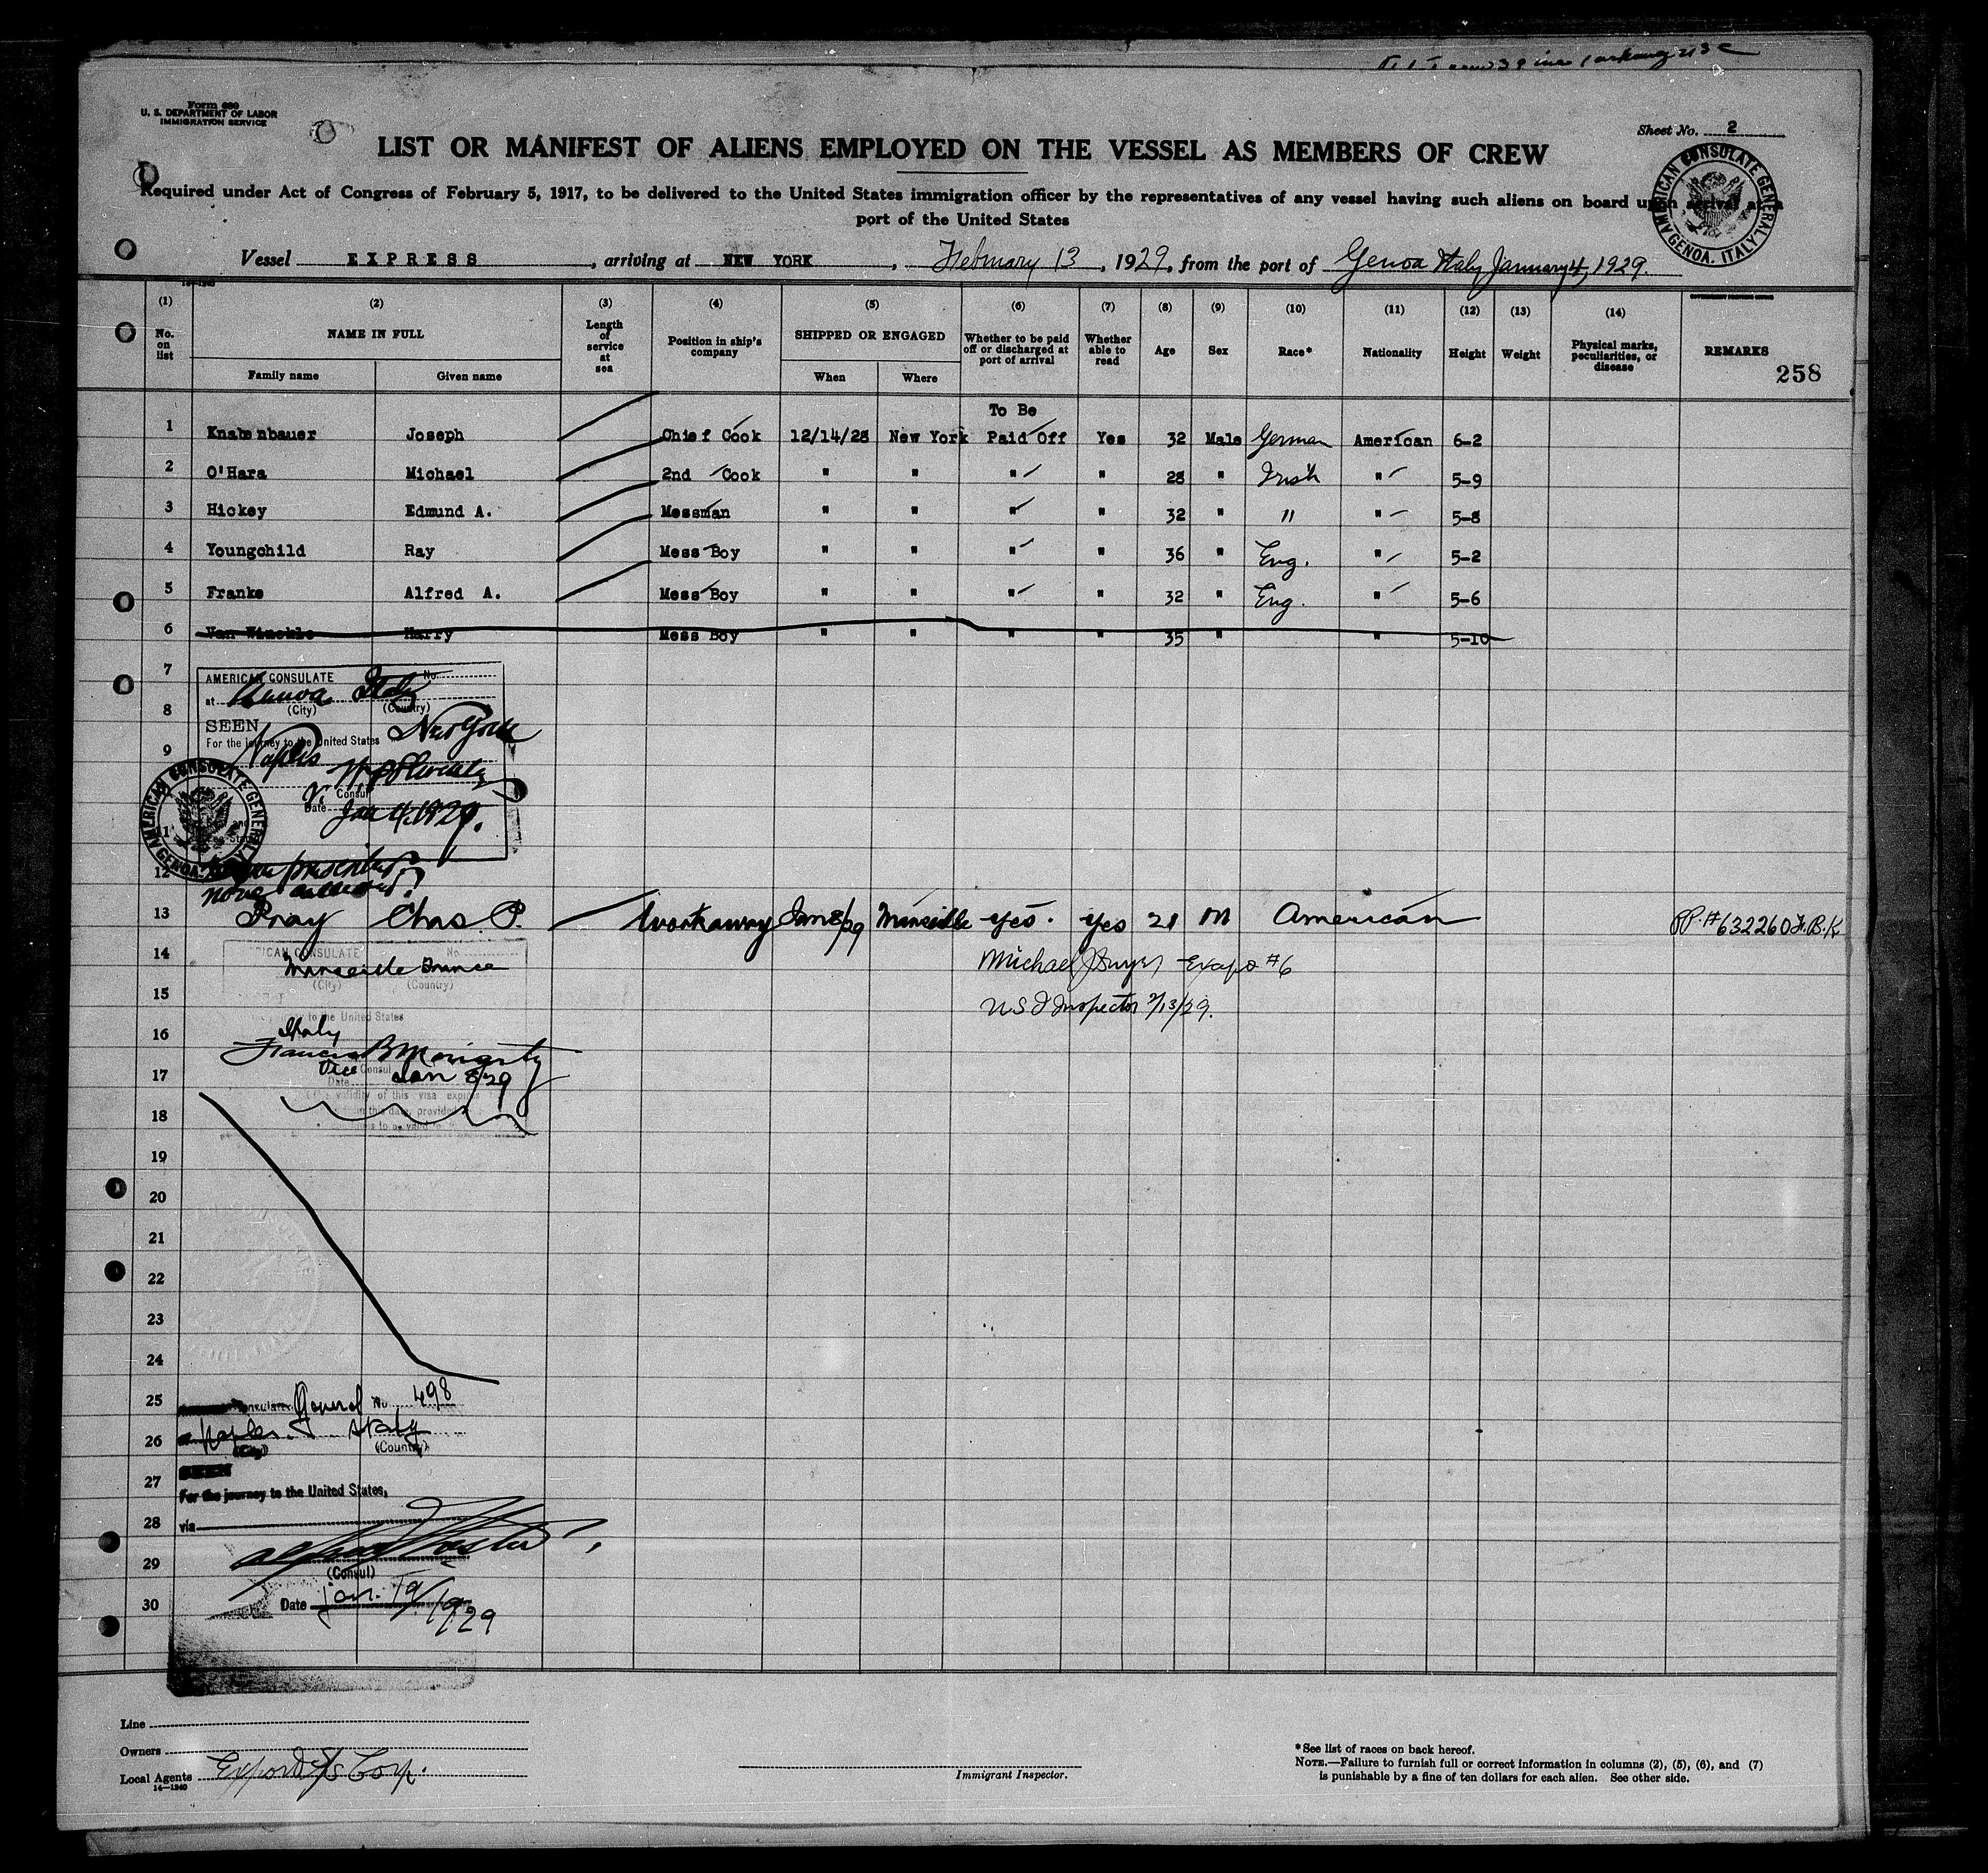 Form 680
U. S. DEPARTMENT OF LABOR
IMMIGRATION SERVICE
Sheet No. 2
LIST OR MANIFEST OF ALIENS EMPLOYED ON THE VESSEL AS MEMBERS OF CREW
Required under Act of Congress of February 5, 1917, to be delivered to the United States immigration officer by the representatives of any vessel having such aliens on board upon arrival at a
port of the United States
AMERICAN CONSULATE GENERAL GENOA. ITALY
Vessel EXPRESS, arriving at NEW YORK, February 13, 1929, from the port of Genoa Italy January 4, 1929.
(1) (2) (3) (4) (5) (6) (7) (8) (9) (10) (11) (12) (13) (14)
No. on list NAME IN FULL Length of service at sea Position in ship's company SHIPPED OR ENGAGED Whether to be paid off or discharged at port of arrival Whether able to read Age Sex Race* Nationality Height Weight Physical marks, peculiarities, or disease REMARKS
Family name Given name When Where
258
To Be
1 Knabenbauer Joseph Chief Cook 12/14/28 New York Paid Off Yes 32 Male German American 6-2
2 O'Hara Michael 2nd Cook " " " " 28 " Irish " 5-9
3 Hickey Edmund A. Messman " " " " 32 " " " 5-8
4 Youngchild Ray Mess Boy " " " " 36 " Eng. " 5-2
5 Franke Alfred A. Mess Boy " " " " 32 " Eng. " 5-6
6 Van Winckle Harry Mess Boy " " " " 35 " " 5-10
7
AMERICAN CONSULATE No.
at Genoa Italy
8
(City) (Country)
SEEN
For the journey to the United States New York
9
Naples
V. Consul
Date Jan 4, 1929.
AMERICAN CONSULATE GENERAL GENOA.
12
13 Pray Chas. P. Workaway Jan 8/29 Marseille yes. yes 21 M American PP. #632260 F.B.K
14
CONSULATE No
Marseille France
(City) (Country)
Michael J Dwyer #6
15
U S I Inspector 2/13/29.
to the United States
16
Italy
Francis B Moriarty
Vice Consul
17
Date Jan 8/29
validity of this visa expires
18
19
20
21
22
23
24
25
General No 498
26
Naples Italy
(City) (Country)
27
SEEN
For the journey to the United States,
28
via
29
(Consul)
30
Date Jan. 19/1929
Line
Owners
Local Agents Export S/S Corp.
14—1240
Immigrant Inspector.
*See list of races on back hereof.
NOTE.—Failure to furnish full or correct information in columns (2), (5), (6), and (7)
is punishable by a fine of ten dollars for each alien. See other side.